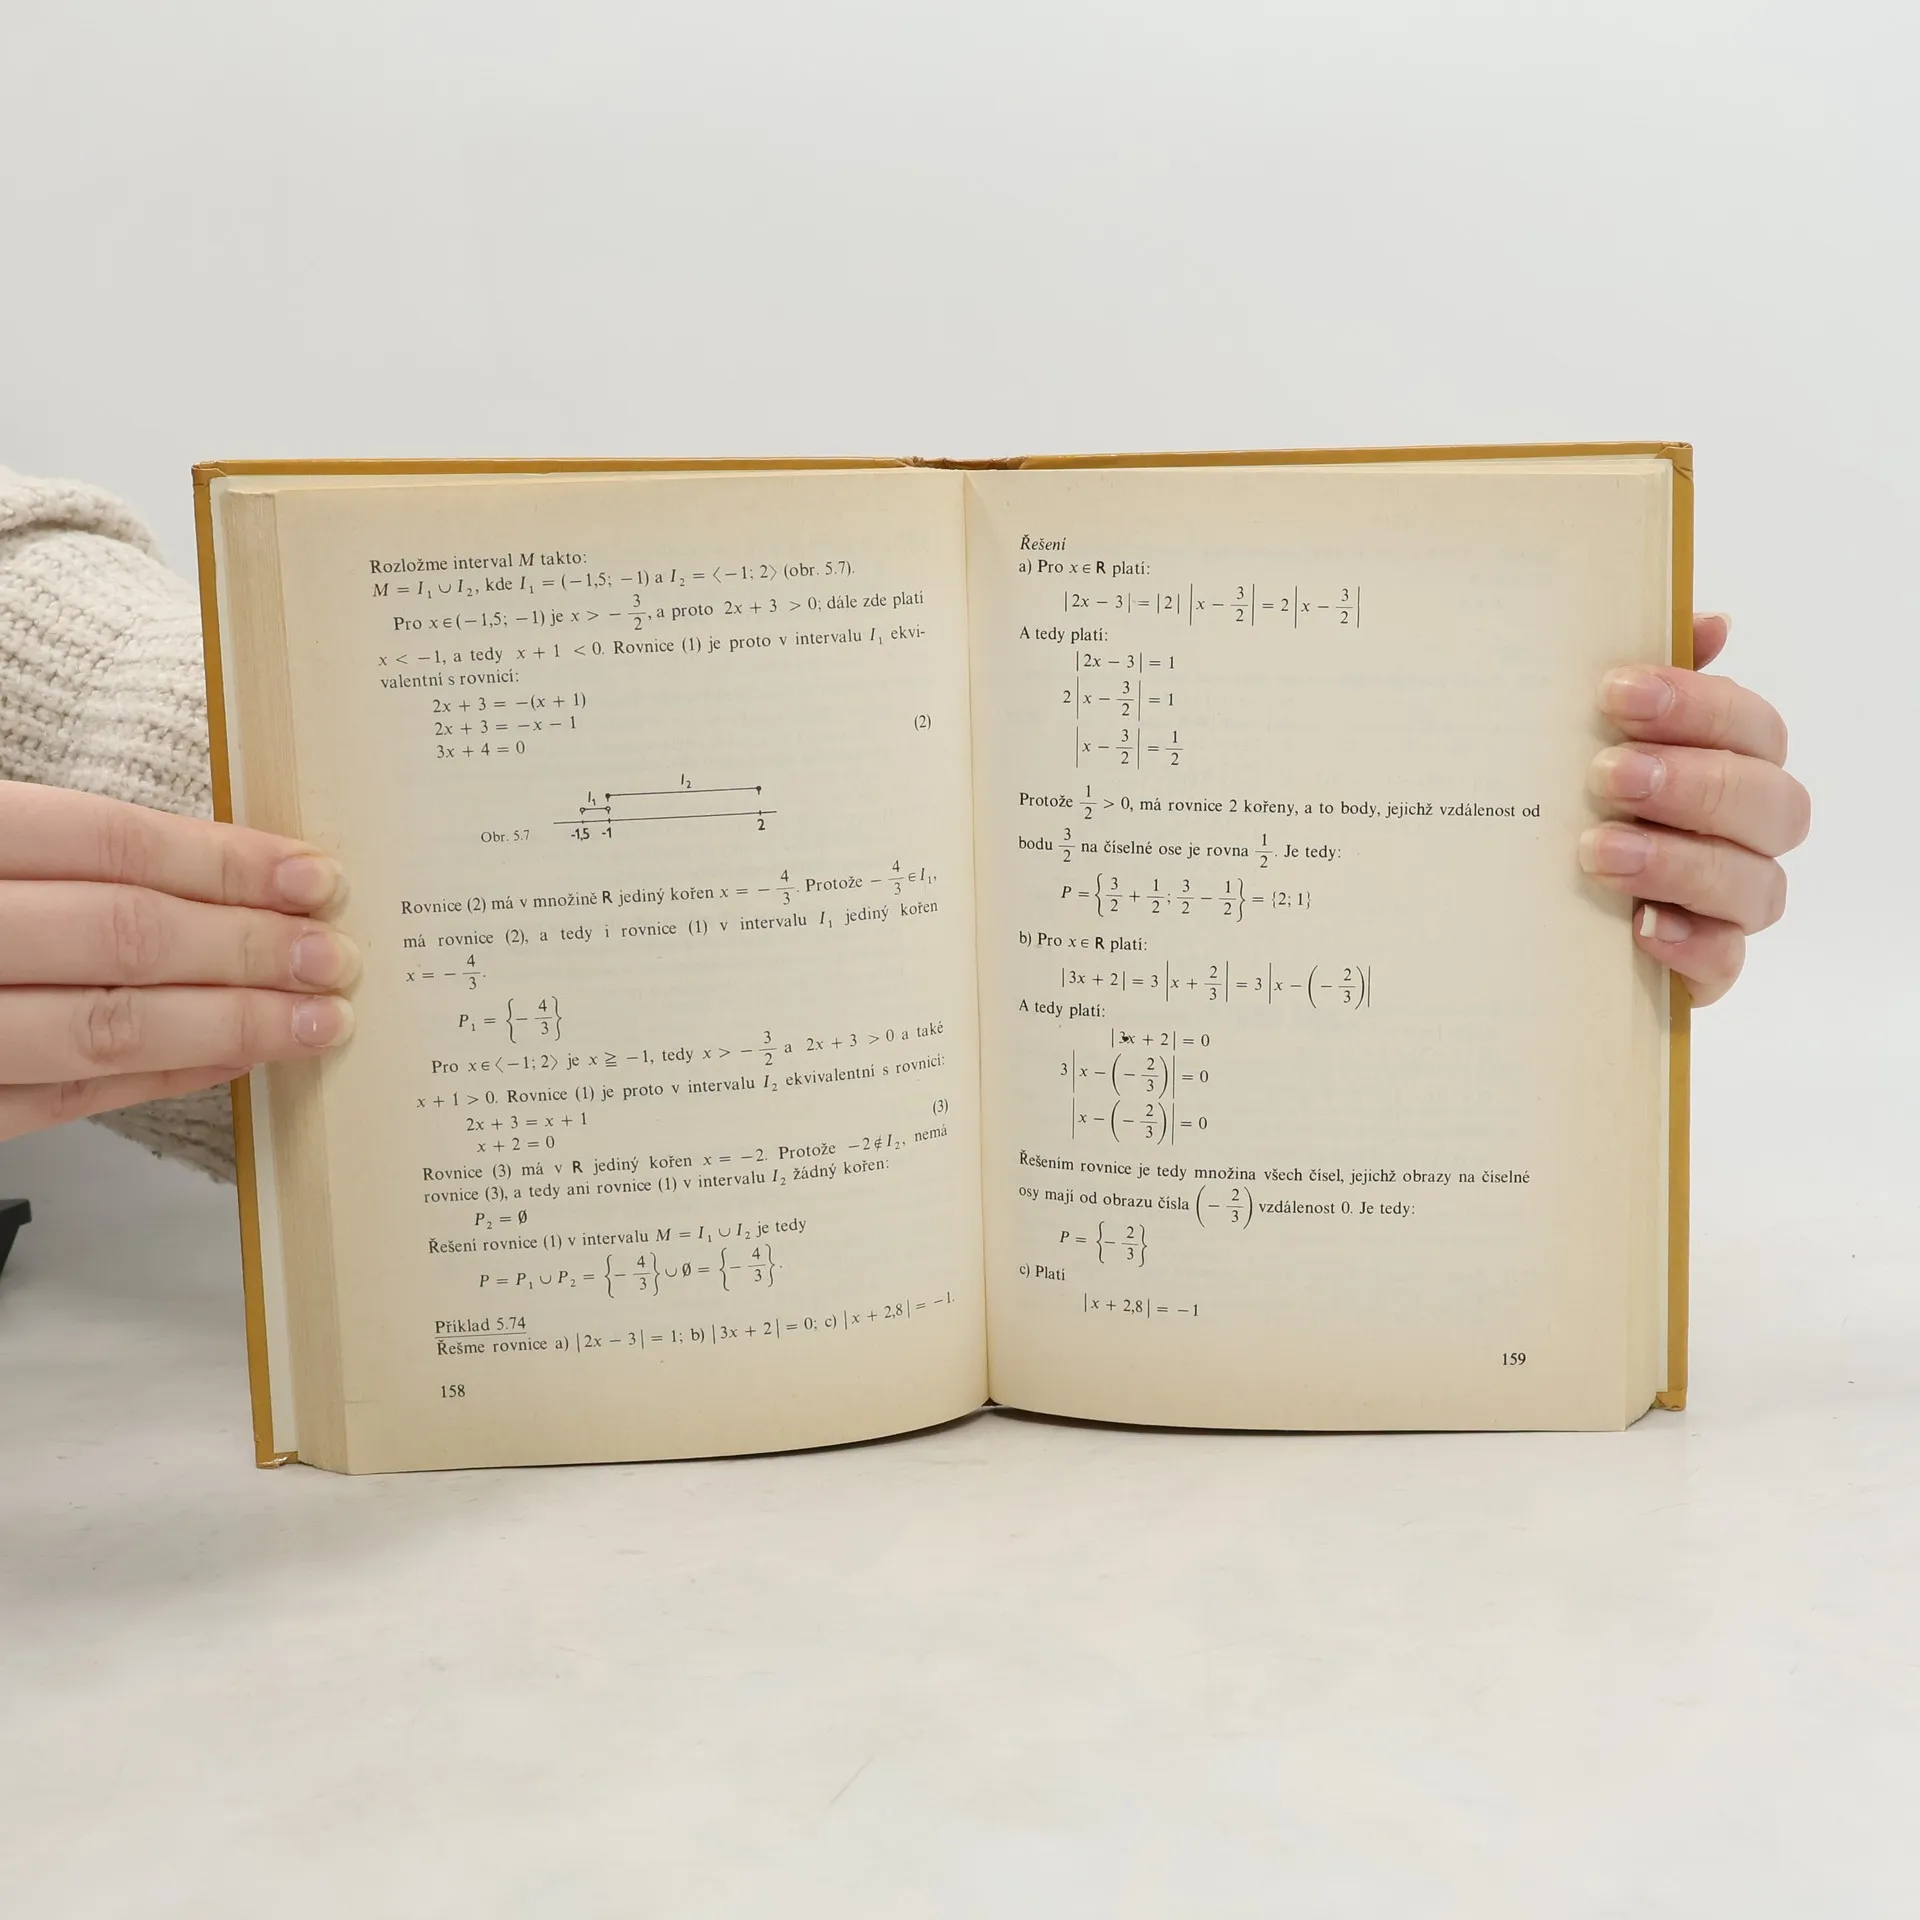 Rozložme interval M takto:
M = I₁ ∪ I₂, kde I₁ = (−1,5; −1) a I₂ = ⟨−1; 2⟩ (obr. 5.7).
Pro x ∈ (−1,5; −1) je x > − 3/2, a proto 2x + 3 > 0; dále zde platí
x < −1, a tedy x + 1 < 0. Rovnice (1) je proto v intervalu I₁ ekvi-
valentní s rovnicí:
2x + 3 = −(x + 1)
2x + 3 = −x − 1 (2)
3x + 4 = 0
I₁ I₂
Obr. 5.7 -1,5 -1 2
Rovnice (2) má v množině R jediný kořen x = − 4/3. Protože − 4/3 ∈ I₁,
má rovnice (2), a tedy i rovnice (1) v intervalu I₁ jediný kořen
x = − 4/3.
P₁ = {− 4/3}
Pro x ∈ ⟨−1; 2⟩ je x ≧ −1, tedy x > − 3/2 a 2x + 3 > 0 a také
x + 1 > 0. Rovnice (1) je proto v intervalu I₂ ekvivalentní s rovnicí:
2x + 3 = x + 1 (3)
x + 2 = 0
Rovnice (3) má v R jediný kořen x = −2. Protože −2 ∉ I₂, nemá
rovnice (3), a tedy ani rovnice (1) v intervalu I₂ žádný kořen:
P₂ = ∅
Řešení rovnice (1) v intervalu M = I₁ ∪ I₂ je tedy
P = P₁ ∪ P₂ = {− 4/3} ∪ ∅ = {− 4/3}.
Příklad 5.74
Řešme rovnice a) |2x − 3| = 1; b) |3x + 2| = 0; c) |x + 2,8| = −1.
158
Řešení
a) Pro x ∈ R platí:
|2x − 3| = |2| |x − 3/2| = 2 |x − 3/2|
A tedy platí:
|2x − 3| = 1
2 |x − 3/2| = 1
|x − 3/2| = 1/2
Protože 1/2 > 0, má rovnice 2 kořeny, a to body, jejichž vzdálenost od
bodu 3/2 na číselné ose je rovna 1/2. Je tedy:
P = {3/2 + 1/2; 3/2 − 1/2} = {2; 1}
b) Pro x ∈ R platí:
|3x + 2| = 3 |x + 2/3| = 3 |x − (− 2/3)|
A tedy platí:
|3x + 2| = 0
3 |x − (− 2/3)| = 0
|x − (− 2/3)| = 0
Řešením rovnice je tedy množina všech čísel, jejichž obrazy na číselné
osy mají od obrazu čísla (− 2/3) vzdálenost 0. Je tedy:
P = {− 2/3}
c) Platí
|x + 2,8| = −1
159